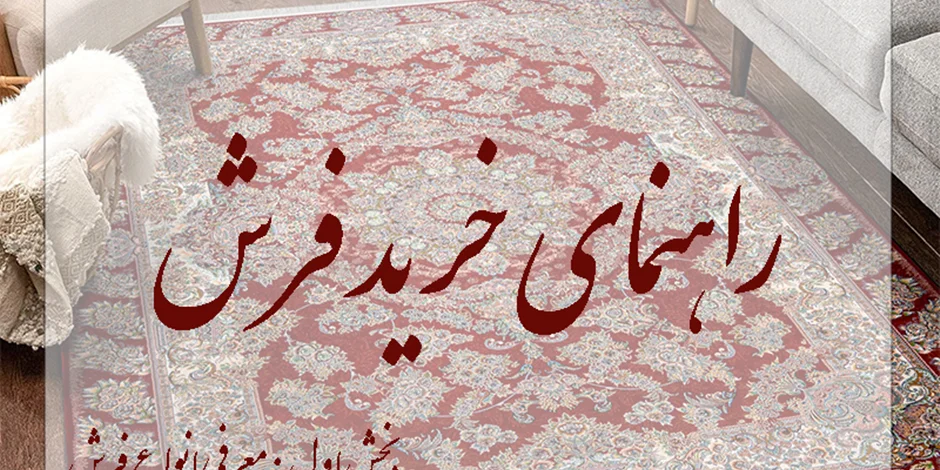 راهنمای خرید فرش
بخش اول: معرفی انواع فرش